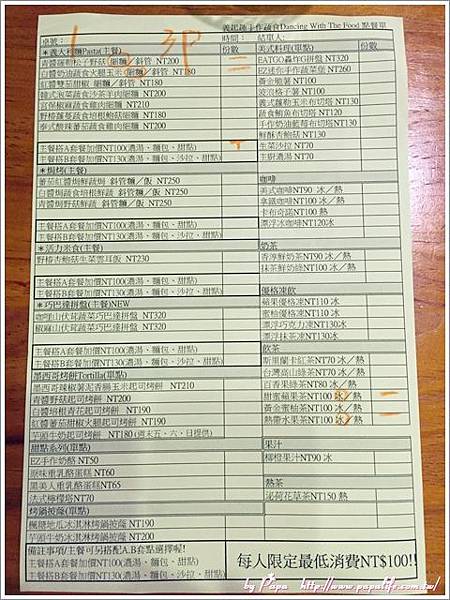 義起趣手作蔬食Dancing With The Food 點餐單
桌號：
時間：
結單人：
*義大利麵Pasta(主餐)
份數
青醬羅勒松子野菇 細麵／斜管 NT200
白醬奶油蔬食火腿玉米 細麵／斜管 NT180
紅醬雙茄甜椒 細麵／斜管 NT180
韓式泡菜蔬食沙茶羊肉細麵 NT200
宮保椒麻蔬食雞肉細麵 NT210
野榛蘿蔓蔬食培根鮑菇細麵 NT180
泰式酸辣蕃茄蔬食雞肉細麵 NT200
主餐搭A套餐加價NT100(濃湯、麵包、甜點)
主餐搭B套餐加價NT130(濃湯、麵包、沙拉、甜點)
*焗烤(主餐)
蕃茄紅醬焗鮮蔬焗 斜管麵／飯 NT250
白醬蔬食焗培根鮮蔬 斜管麵／飯 NT250
青醬焗野菇鮮蔬 斜管麵／飯 NT250
主餐搭A套餐加價NT100(濃湯、麵包、甜點)
主餐搭B套餐加價NT130(濃湯、麵包、沙拉、甜點)
*活力米食(主餐)
野榛杏鮑菇生菜雲耳飯 NT230
主餐搭A套餐加價NT100(濃湯、麵包、甜點)
主餐搭B套餐加價NT130(濃湯、麵包、沙拉、甜點)
*巧巴達拼盤(主餐)NEW
咖哩山伏茸蔬菜巧巴達拼盤 NT320
椒麻山伏茸蔬菜巧巴達拼盤 NT320
主餐搭A套餐加價NT100(濃湯、麵包、甜點)
主餐搭B套餐加價NT130(濃湯、麵包、沙拉、甜點)
墨西哥烤餅Tortilla(單點)
墨西哥辣椒薯泥香腸玉米起司烤餅 NT210
青醬野菇起司烤餅 NT200
白醬培根青花起司烤餅 NT190
紅醬蕃茄甜椒火腿起司烤餅 NT190
芋頭牛奶起司烤餅 NT180(週末五、六、日提供)
甜點系列(單點)
EZ手作奶酪 NT50
原味重乳酪蛋糕 NT60
黑美人重乳酪蛋糕NT65
法式檸檬塔NT70
烤鍋披薩(單點)
楓糖地瓜冰淇淋烤鍋披薩 NT190
芋頭牛奶冰淇淋烤鍋披薩 NT200
備註事項/主餐可另搭配A.B套點選擇喔!
主餐搭A套餐加價NT100(濃湯、麵包、甜點)
主餐搭B套餐加價NT130(濃湯、麵包、沙拉、甜點)
美式料理(單點)
份數
EATGO轟炸GH拼盤 NT320
EZ迷你手作蔬菜堡 NT260
黃金脆薯 NT100
波浪格子薯 NT100
義式蘿勒玉米布切塔 NT130
蔬食鮪魚布切塔 NT130
手作奶油藍莓布切塔NT130
鮮酥杏鮑菇 NT130
生菜沙拉 NT70
主廚濃湯 NT70
咖啡
美式咖啡NT90 冰／熱
拿鐵咖啡NT100 冰／熱
卡布奇諾NT100 熱
漂浮冰咖啡NT120冰
奶茶
香淳鮮奶茶NT90 冰／熱
抹茶鮮奶綠NT100 冰／熱
優格凍飲
蘋果優格凍NT110 冰
蜜柚優格凍NT110 冰
漂浮巧克力凍NT130冰
漂浮抹茶凍NT130冰
飲茶
斯里蘭卡紅茶NT70 冰／熱
台灣高山綠茶NT70 冰／熱
百香果綠茶NT80 冰／熱
甜蜜蘋果茶NT100 冰／熱
黃金蜜柚茶NT100 冰／熱
熱帶水果茶NT100 冰／熱
果汁
柳橙原汁NT90 冰
熱茶
泌荷花草茶NT150 熱
每人限定最低消費NT$100!!
by Papa http://www.papalife.com.tw/